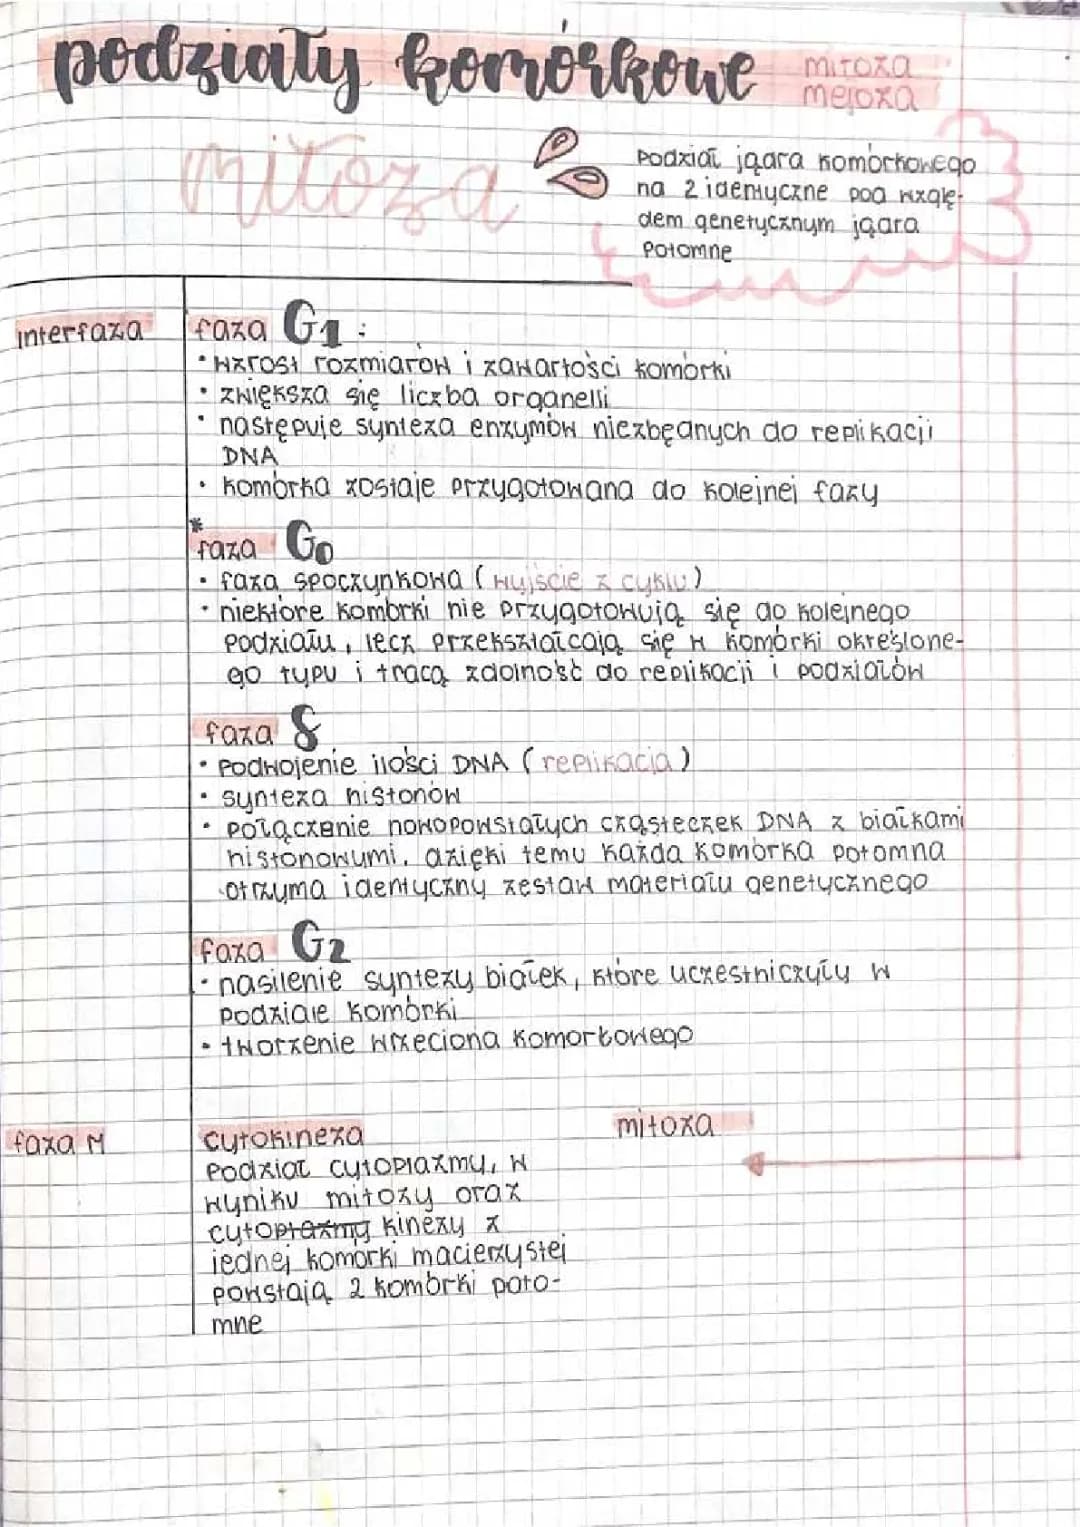 podziały komórkowe mitoza
mejoza
mitoza
Podział jądra komórkowego
na 2 identyczne pod wzglę-
dem genetycznym jądra
potomne
interfaza
faza G1:
• wzrost rozmiarów i zawartości komórki
• zwiększa się liczba organelli
• następuje synteza enzymów niezbędnych do replikacji
DNA
• komórka zostaje przygotowana do kolejnej fazy
*
faza G0
• faza spoczynkowa (wyjście z cyklu)
• niektóre komórki nie przygotowują się do kolejnego
podziału, lecz przekształcają się w komórki określone-
go typu i tracą zdolność do replikacji i podziałów
faza S
• podwojenie ilości DNA (replikacja)
• synteza histonów
• połączenie nowopowstałych cząsteczek DNA z białkami
histonowymi, dzięki temu każda komórka potomna
otrzyma identyczny zestaw materiału genetycznego
faza G2
• nasilenie syntezy białek, które uczestniczyły w
podziale komórki
• tworzenie wrzeciona komórkowego
faza M
cytokineza
Podział cytoplazmy, w
wyniku mitozy oraz
cytoplazmy kinezy z
jednej komórki macierzystej
powstają 2 komórki poto-
mne
mitoza